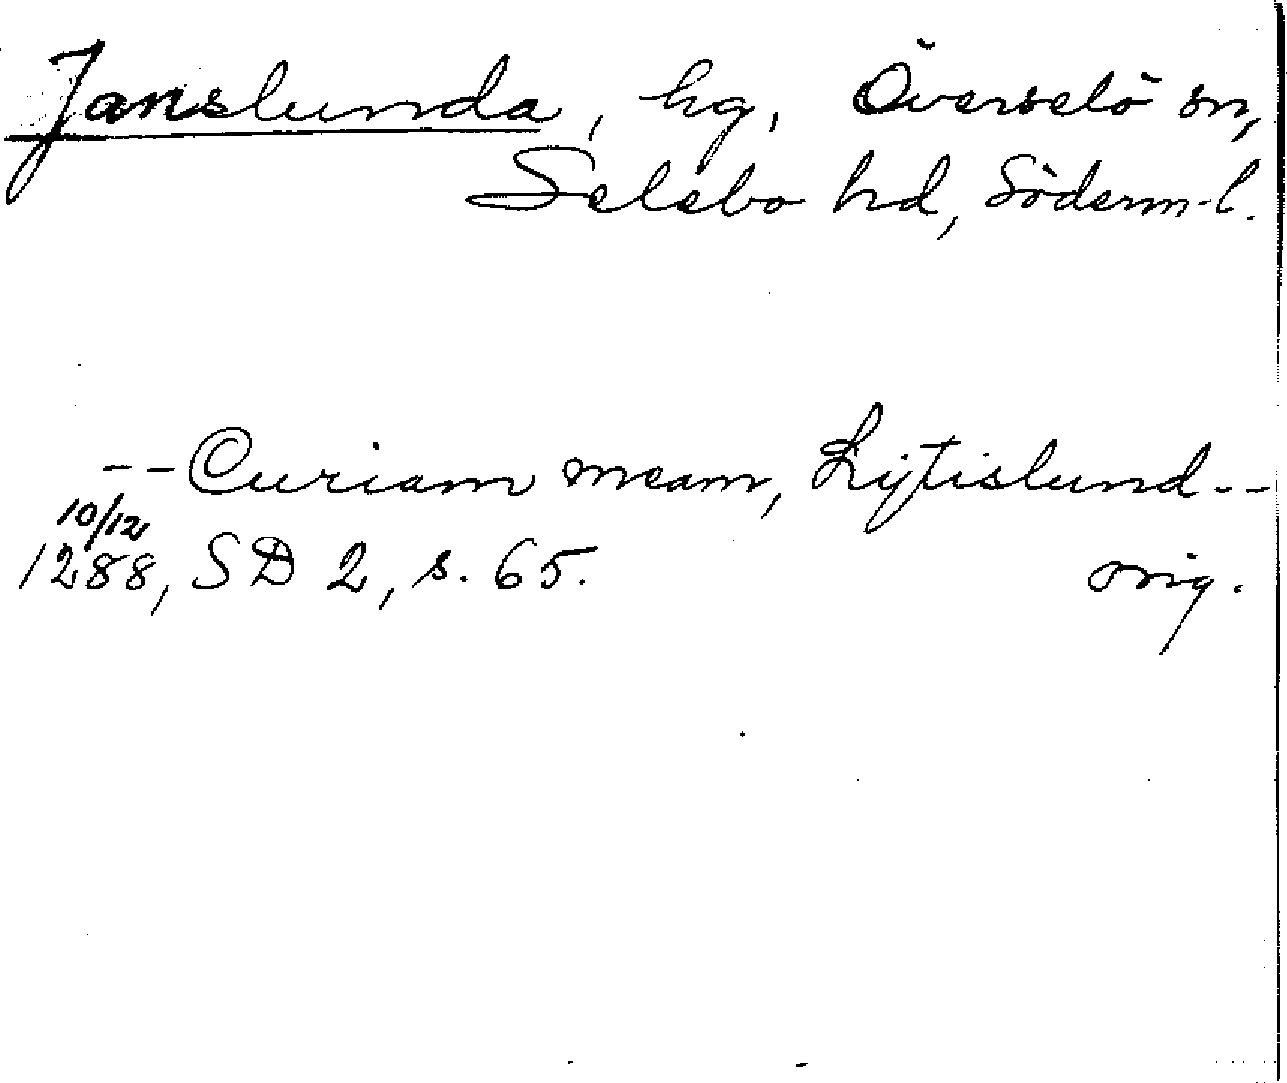 Janslunda, hg, Överselö sn,
Selebo hd, Söderm-l.
-- Curiam meam, Lijtislund --
10/12
1288, SD 2, s. 65. orig.